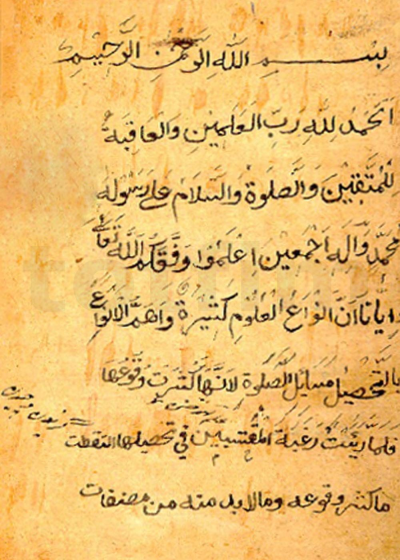 بسم الله الرحمن الرحيم
الحمد لله رب العلمين والعاقبة
للمتقين والصلوة والسلام على رسوله
محمد وآله اجمعين اعلموا وفقكم الله تعالى
وايانا ان انواع العلوم كثيرة واهم الانواع
بالتحصيل مسائل الصلوة لانها كثرت وقوعها
فلما رئيت رغبة المقتبسين في تحصيلها التقطت
ما كثر وقوعه وما لا بد منه من مصنفات